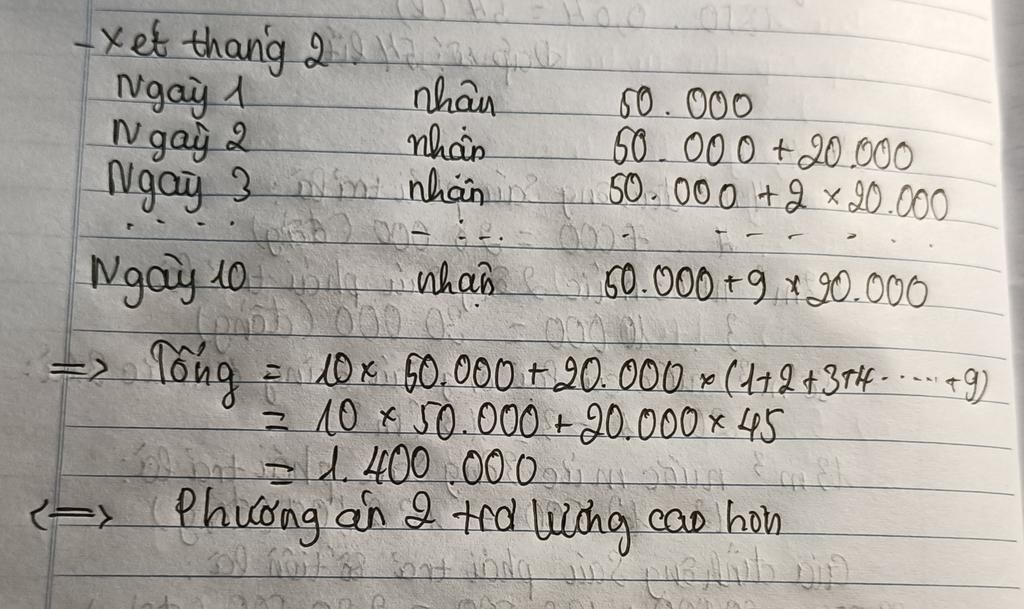 - Xet tháng 2
Ngày 1 nhận 50.000
Ngày 2 nhận 50.000 + 20.000
Ngày 3 nhận 50.000 + 2 × 20.000
. . . . . - . . - - - . . .
Ngày 10 nhận 50.000 + 9 × 20.000
=> Tổng = 10 × 50.000 + 20.000 × (1+2+3+4.....+9)
= 10 × 50.000 + 20.000 × 45
= 1.400.000
<=> Phương án 2 trả lương cao hơn